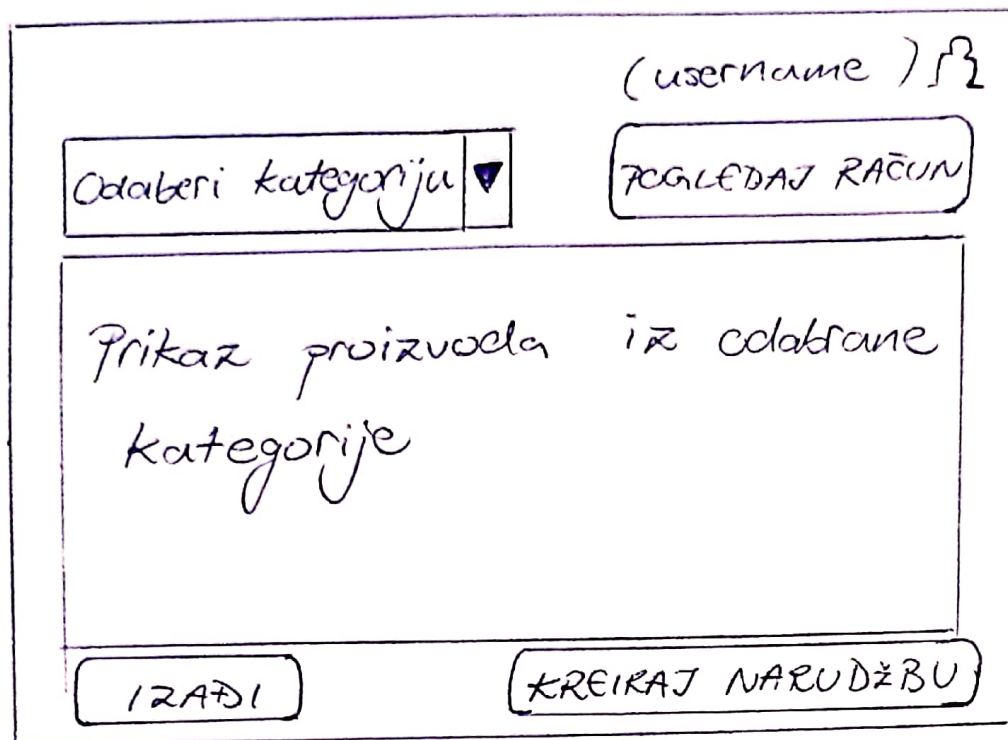 (username)
Odaberi kategoriju
POGLEDAJ RAČUN
Prikaz proizvoda iz odabrane
kategorije
IZAĐI
KREIRAJ NARUDŽBU